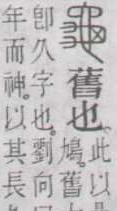 龜舊也。此以
鳩。舊
卽久字也。劉向
年而神。以其長